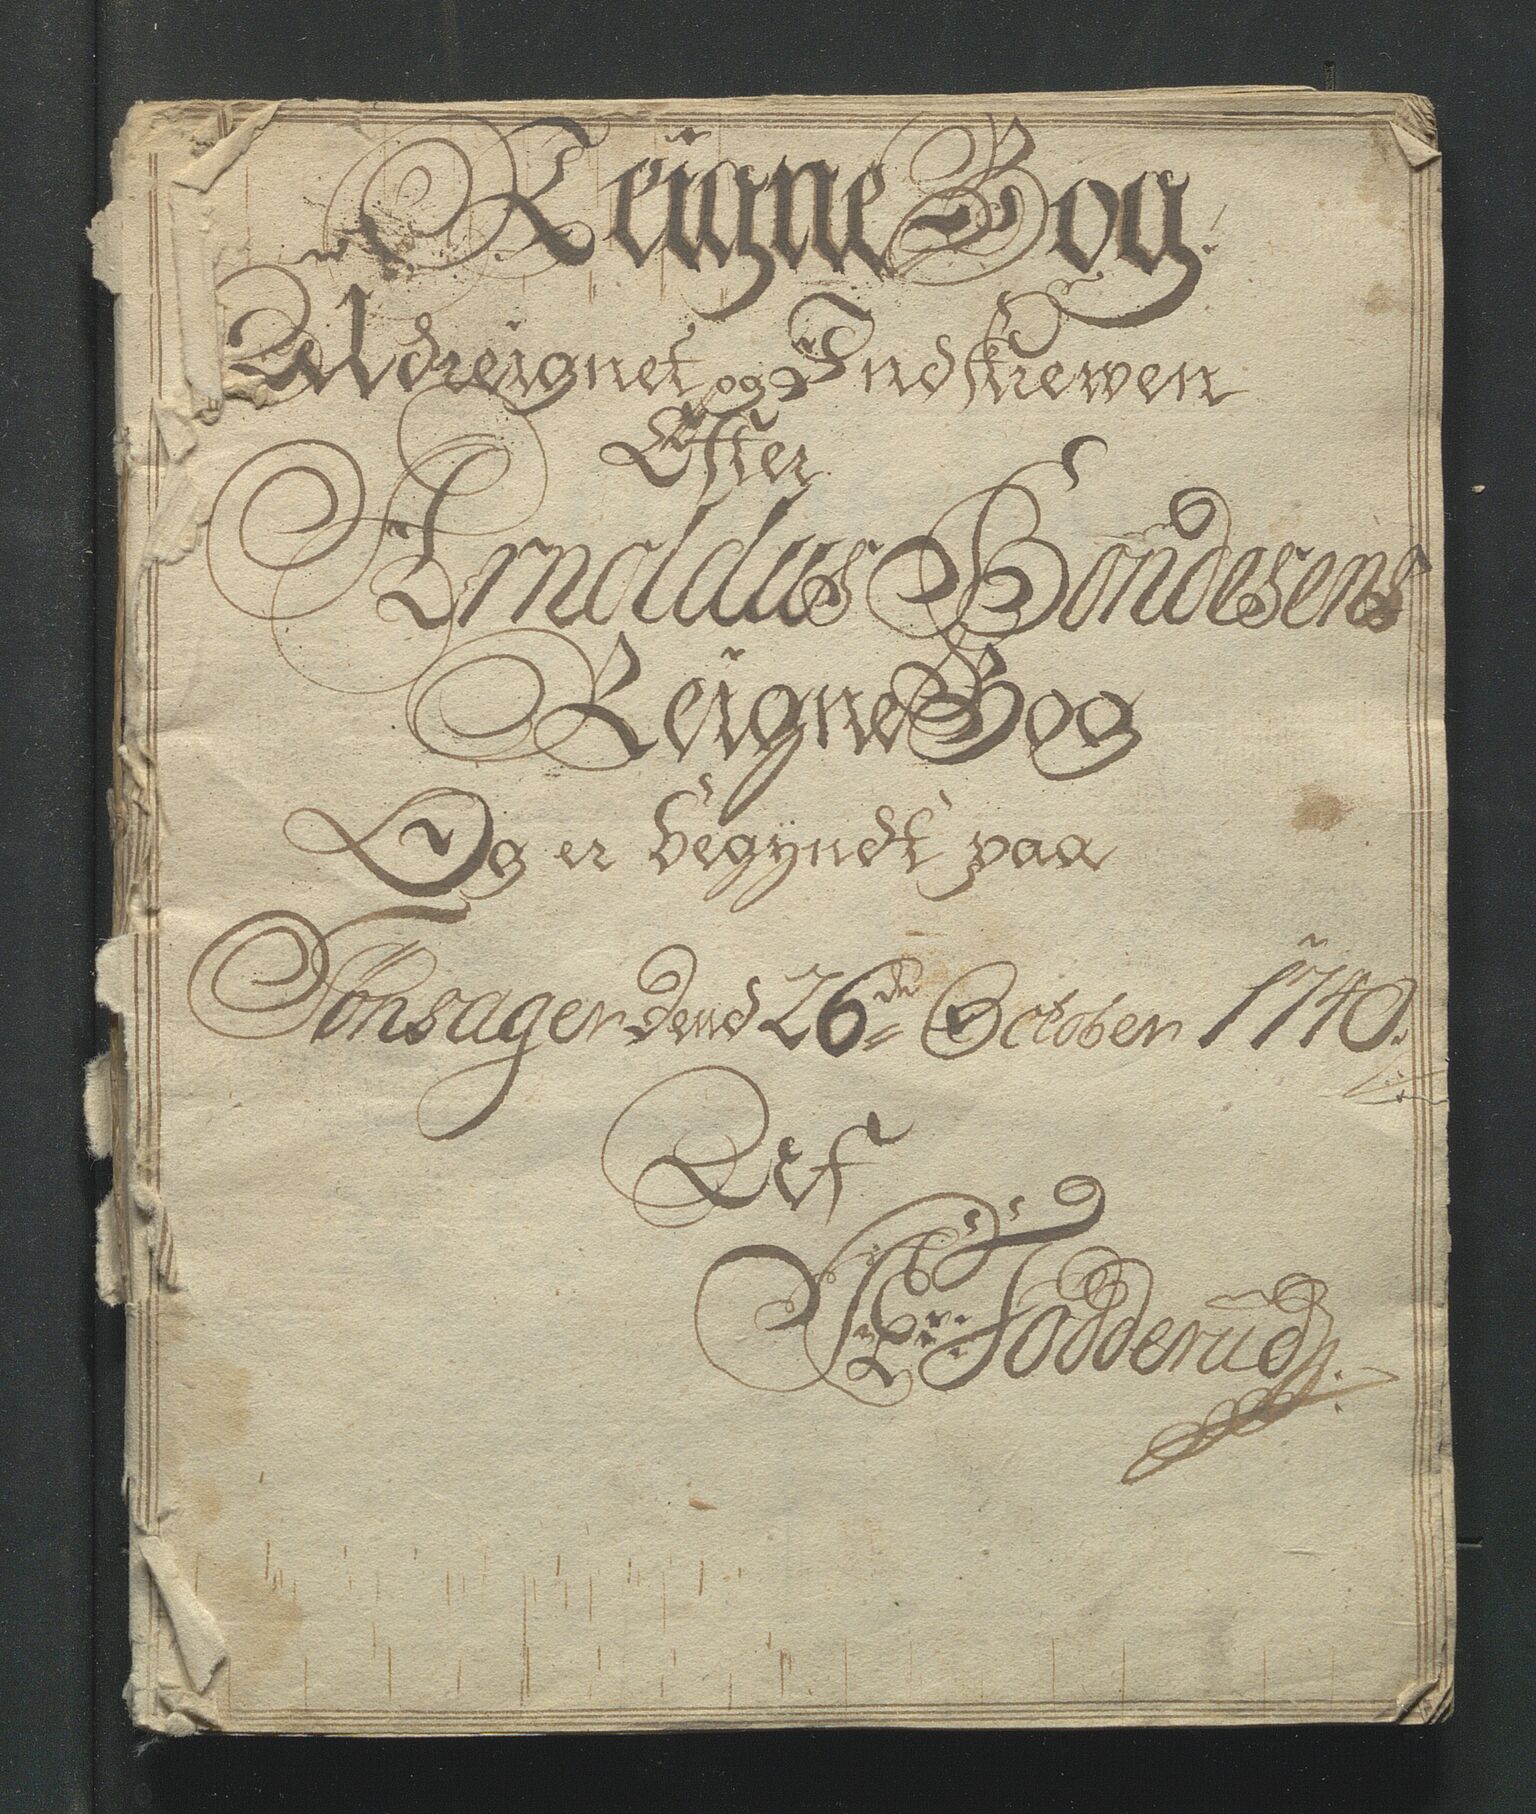 Reigne Bog.
Udreignet og Indskrewen
Efter
Arnoldus Bondesens
Reigne Bog
Og er begyndt paa
Tønsager dend 26de October 1740.
Af
Fodderud